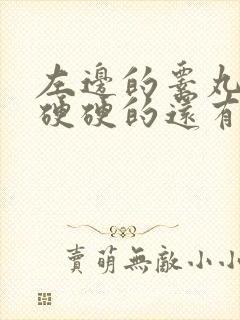 左邊的睪丸
硬硬的還有
賣萌無敵小小